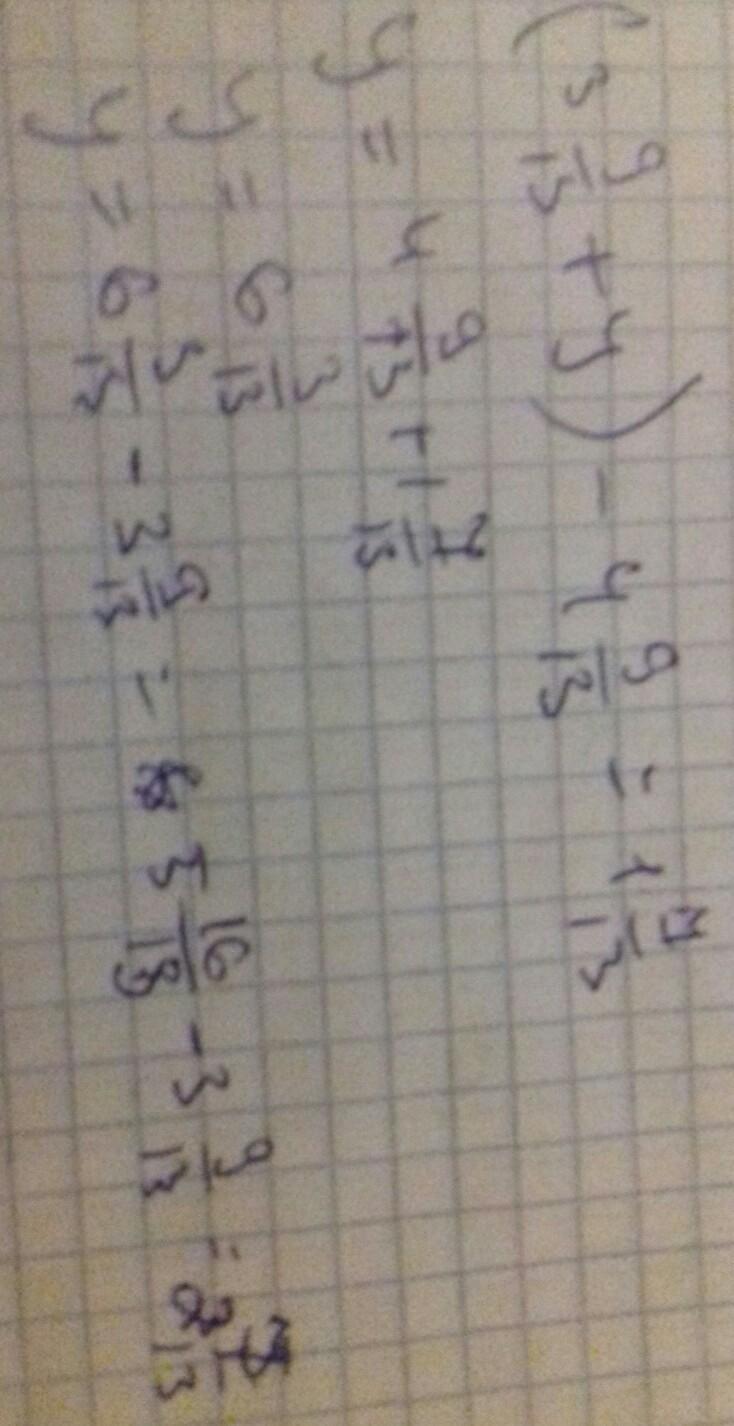 (3 9/13 + y) - 4 9/13 = 1 7/13
y = 4 9/13 + 1 7/13
y = 6 3/13
y = 6 3/13 - 3 9/13 = 5 16/13 - 3 9/13 = 2 7/13